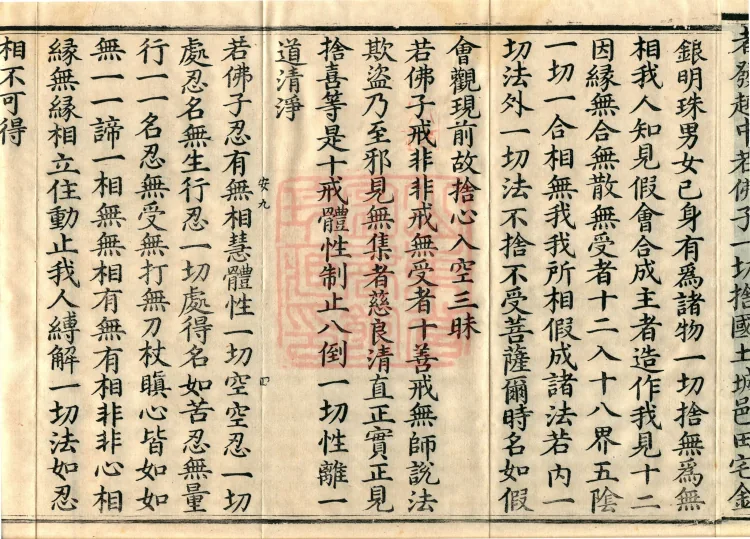 發起中若佛子一切捨國土城邑田宅金
銀明珠男女已身有爲諸物一切捨無爲無
相我人知見假會合成主者造作我見十二
因緣無合無散無受者十二入十八界五陰
一切一合相無我我所相假成諸法若內一
切法外一切法不捨不受菩薩爾時名如假
會觀現前故捨心入空三昧
若佛子戒非非戒無受者十善戒無師說法
欺盜乃至邪見無集者慈良清直正實正見
捨喜等是十戒體性制止八倒一切性離一
道清淨
安九 四
若佛子忍有無相慧體性一切空空忍一切
處忍名無生行忍一切處得名如苦忍無量
行一一名忍無受無打無刀杖瞋心皆如如
無一一諦一相無無相有無有相非非心相
緣無緣相立住動止我人縛解一切法如忍
相不可得